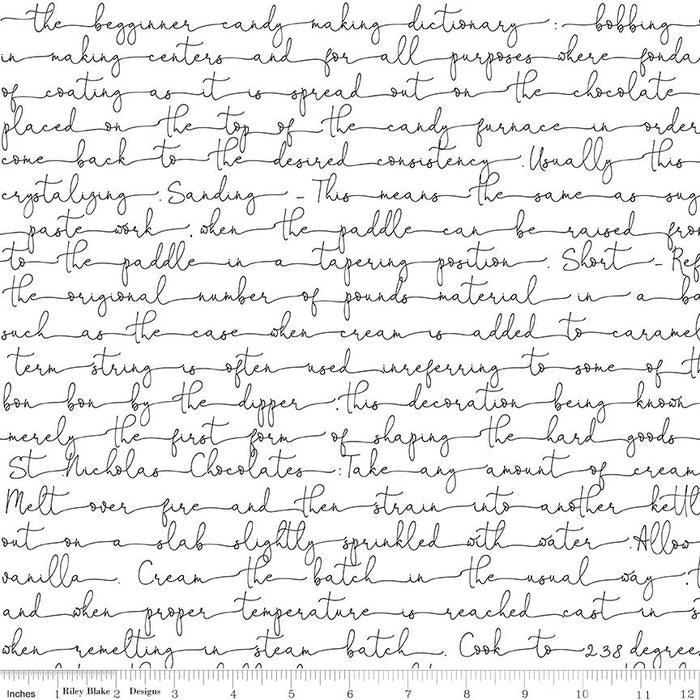 the begginner candy making dictionary : bobbing
in making centers and for all purposes where fonda
of coating as it is spread out on the chocolate
placed on the top of the candy furnace in order
come back to the desired consistency . Usually this
crystalizing . Sanding - This means the same as sug
paste work . when the paddle can be raised from
to the paddle in a tapering position . Short - Ref
the origional number of pounds material in a ba
such as the case when cream is added to caramel
term string is often used inreferring to some of th
bon bon by the dipper . this decoration being known
merely the first form of shaping the hard goods
St Nicholas Chocolates : Take any amount of cream
Melt over fire and then strain into another kettl
out on a slab slightly sprinkled with water . Allow
vanilla . Cream the batch in the usual way . t
and when proper temperature is reached cast in s
when remelting in steam batch . Cook to 238 degrees
Inches 1 Riley Blake 2 Designs 3 4 5 6 7 8 9 10 11 12